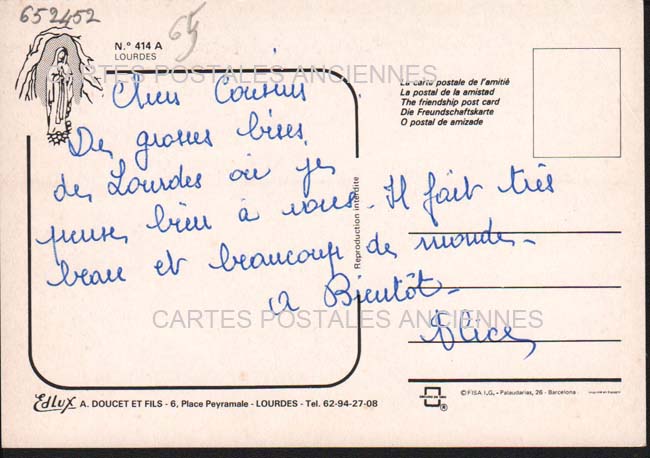 652452
65
N.° 414 A
LOURDES
CARTES POSTALES ANCIENNES
La carte postale de l'amitié
La postal de la amistad
The friendship post card
Die Freundschaftskarte
O postal de amizade
Chers Cousins
De grosses bises
de Lourdes où je
pense bien à vous. Il fait très
beau et beaucoup de monde.
A Bientôt.
Alice
Reproduction interdite
CARTES POSTALES ANCIENNES
Edlux A. DOUCET ET FILS - 6, Place Peyramale - LOURDES - Tel. 62-94-27-08
© FISA I.G. - Palaudarias, 26 - Barcelona